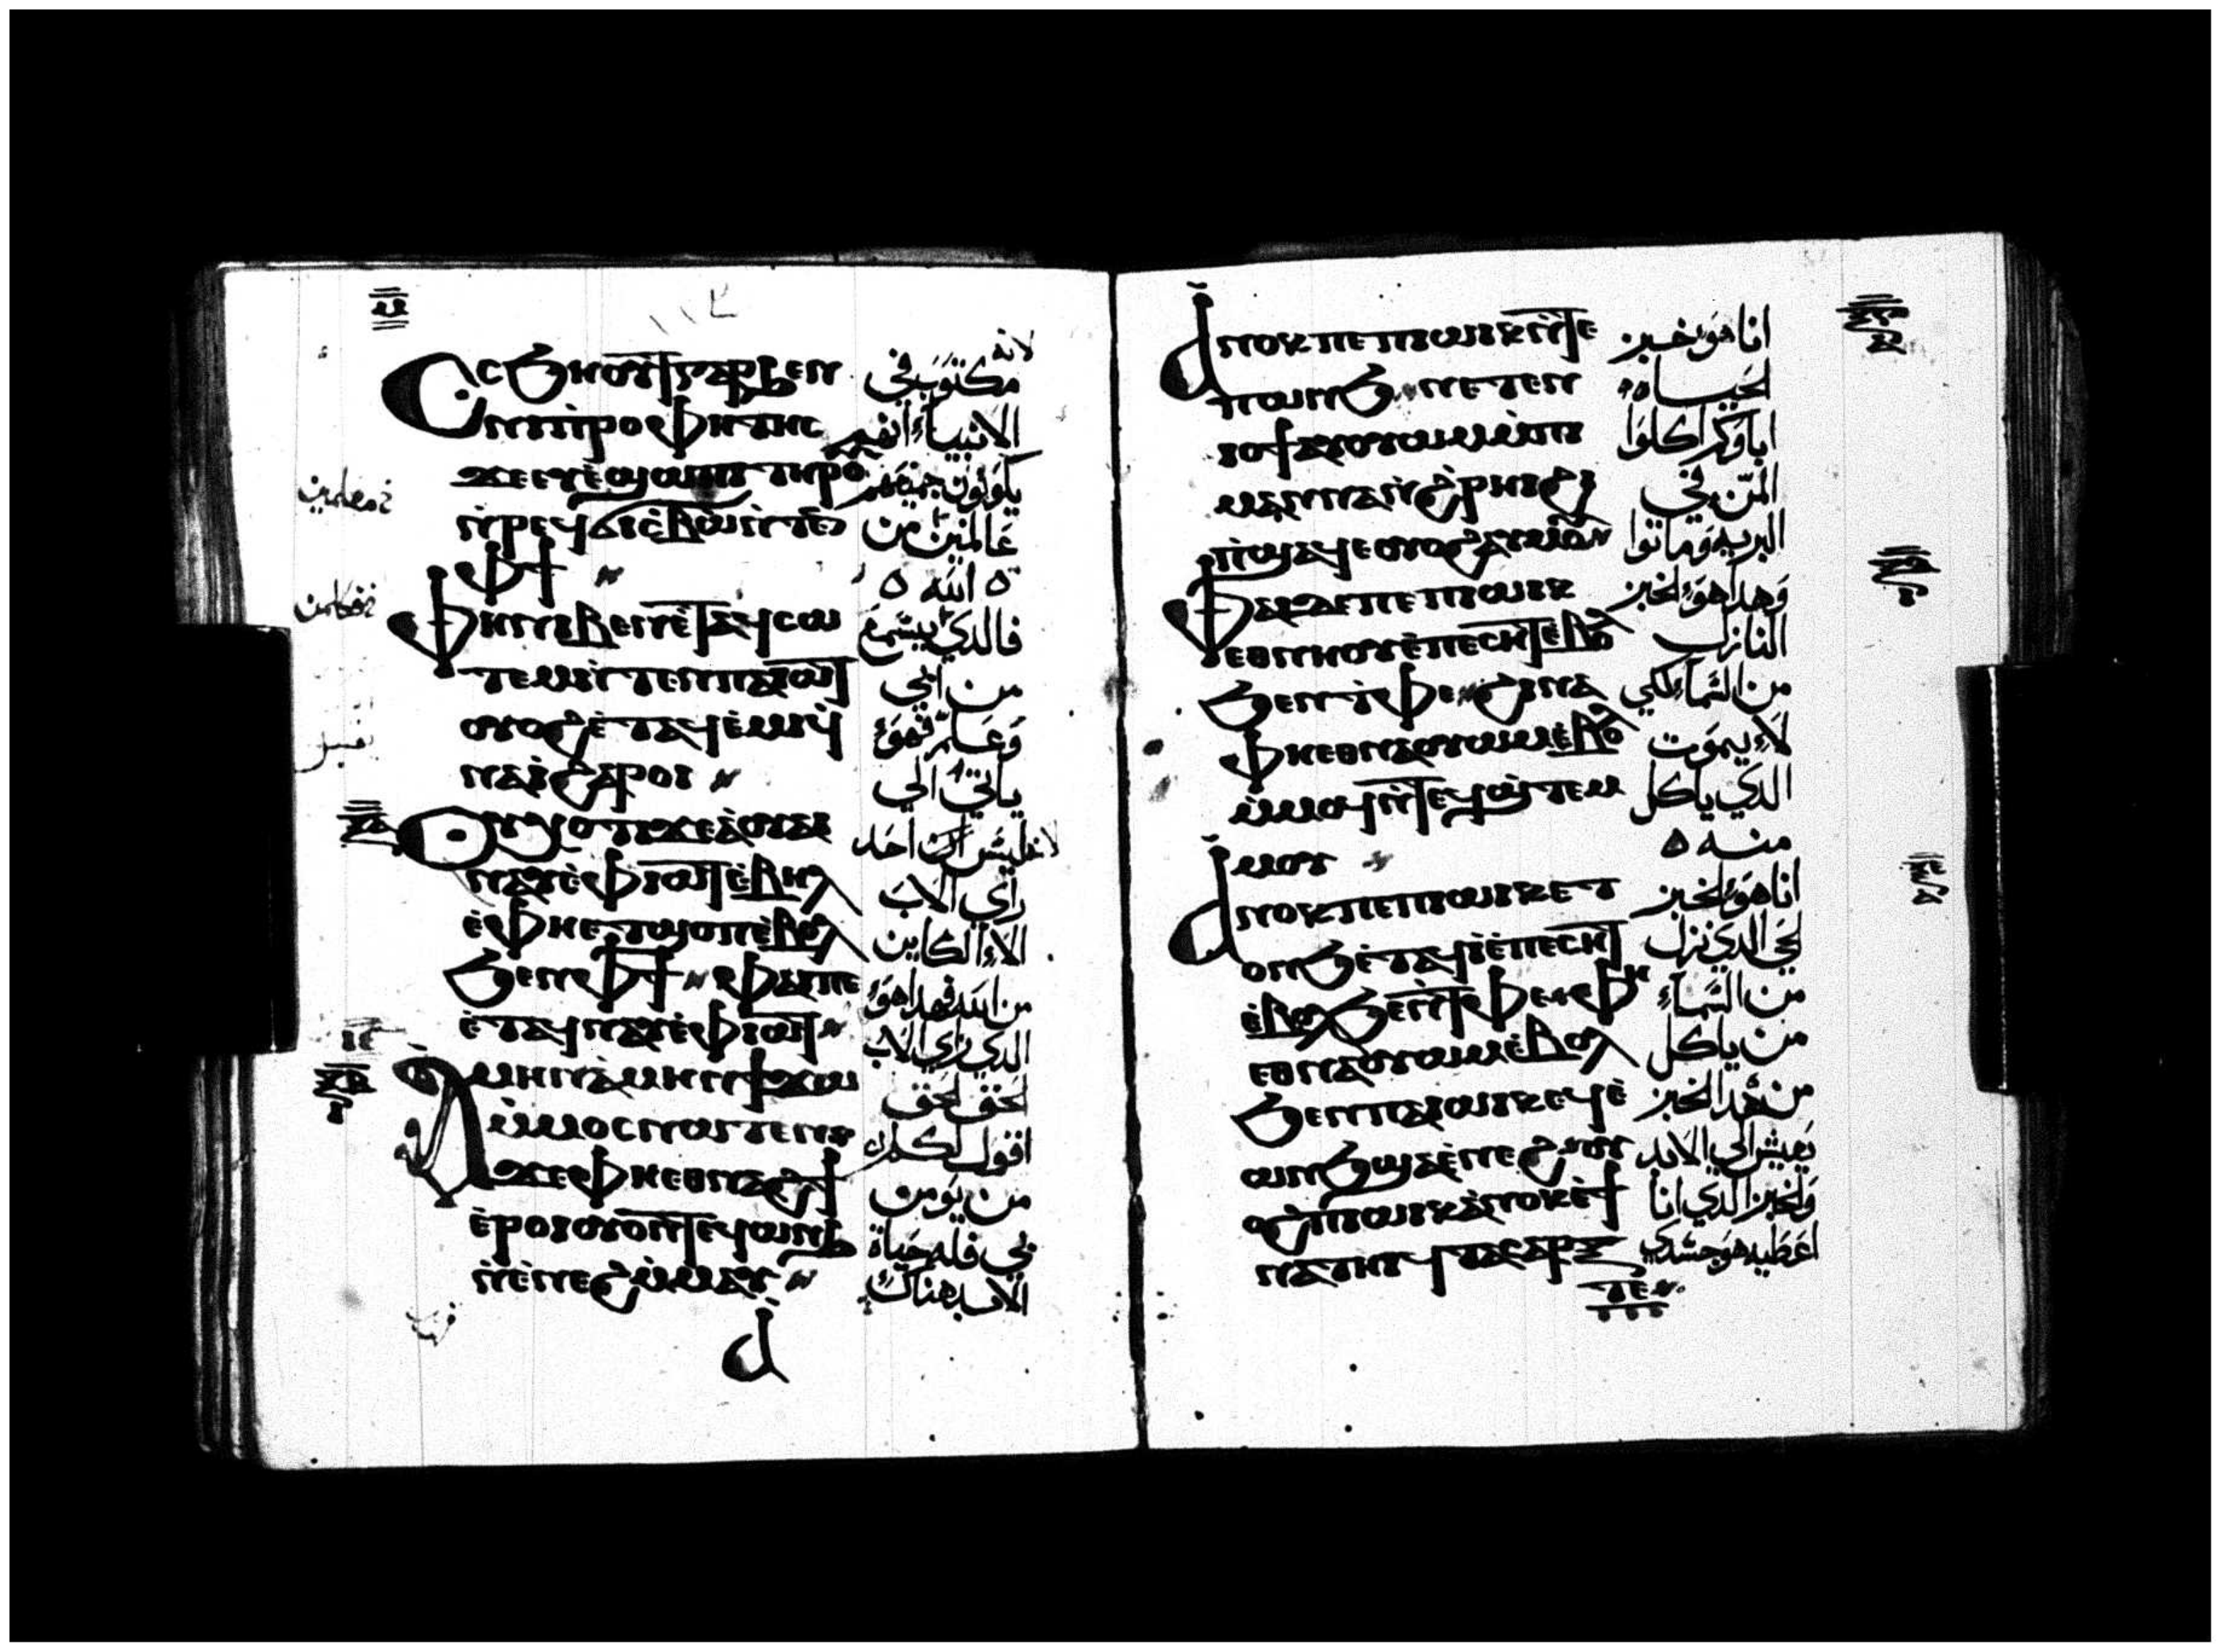 ⲥⲥϧⲏⲟⲩⲧ ⲅⲁⲣ ϧⲉⲛ
ⲛⲓⲡⲣⲟⲫⲏⲧⲏⲥ
ϫⲉ ⲉⲩⲉ̀ϣⲱⲡⲓ ⲧⲏⲣⲟⲩ
ⲛ̀ⲣⲉϥϭⲓⲥⲃⲱ ⲛ̀ⲧⲉ
ⲫϯ
ⲫⲏ ⲟⲩⲃⲉⲛ ⲉ̀ⲧⲁϥⲥⲱ
ⲧⲉⲙ ⲛ̀ⲧⲉⲛ ⲡⲁⲓⲱⲧ
ⲟⲩⲟϩ ⲉ̀ⲧⲁϥⲉ̀ⲙⲓ ϥ̀
ⲛⲁⲓ̀ ϩⲁⲣⲟⲓ
ⲟⲩⲭ ⲟⲧⲓ ϫⲉ ⲁ̀ ⲟⲩⲁⲓ
ⲛⲁⲩ ⲉ̀ⲫⲓⲱⲧ ⲉ̀ⲃⲏⲗ
ⲉ̀ⲫⲏ ⲉⲧϣⲟⲡ ⲉ̀ⲃⲟⲗ
ϧⲉⲛ ⲫϯ ⲫⲁⲓ ⲡⲉ
ⲉ̀ⲧⲁϥⲛⲁⲩ ⲉ̀ⲫⲓⲱⲧ
ⲁ̀ⲙⲏⲛ ⲁ̀ⲙⲏⲛ ϯϫⲱ
ⲙ̀ⲙⲟⲥ ⲛⲱⲧⲉⲛ
ϫⲉ ⲫⲏ ⲉⲑⲛⲁϩϯ
ⲉ̀ⲣⲟⲓ ⲟⲩⲟⲛⲧⲉϥ ⲱⲛϧ
ⲛ̀ⲉ̀ⲛⲉϩ ⲙ̀ⲙⲁⲩ
ⲁ
لانه
مكتوب في
الانبياء انهم
يكونون جميعهم
عالمين من
الله
فالدي يسمع
من ابي
وعلم فهو
ياتي الي
ليس ان احد
راي الاب
الا الكاين
من الله فهدا هو
الدي راي الاب
الحق الحق
اقول لكم
من يومن
بي فله حياة
الابد هناك
ⲁⲛⲟⲕ ⲡⲉ ⲡⲓⲱⲓⲕ ⲛ̀ⲧⲉ
ⲡⲱⲛϧ ⲛⲉⲧⲉⲛ
ⲓⲟϯ ⲁⲩⲟⲩⲱⲙ ⲙ̀ⲡⲓ
ⲙⲁⲛⲛⲁ ⲛ̀ϩ̀ⲣⲏⲓ ϩⲓ
ⲡϣⲁϥⲉ ⲟⲩⲟϩ ⲁⲩⲙⲟⲩ
ⲫⲁⲓ ⲇⲉ ⲡⲉ ⲡⲓⲱⲓⲕ
ⲉⲑⲛⲏⲟⲩ ⲉ̀ⲡⲉⲥⲏⲧ ⲉ̀ⲃⲟⲗ
ϧⲉⲛ ⲧ̀ⲫⲉ ϩⲓⲛⲁ
ⲫⲏ ⲉⲑⲛⲁⲟⲩⲱⲙ ⲉ̀ⲃⲟⲗ
ⲙ̀ⲙⲟϥ ⲛ̀ⲧⲉϥϣ̀ⲧⲉⲙ
ⲙⲟⲩ
ⲁⲛⲟⲕ ⲡⲉ ⲡⲓⲱⲓⲕ ⲉⲧ
ⲟⲛϧ ⲉ̀ⲧⲁϥⲓ̀ ⲉ̀ⲡⲉⲥⲏⲧ
ⲉ̀ⲃⲟⲗ ϧⲉⲛ ⲧ̀ⲫⲉ ⲫⲏ
ⲉⲑⲛⲁⲟⲩⲱⲙ ⲉ̀ⲃⲟⲗ
ϧⲉⲛ ⲡⲁⲓⲱⲓⲕ ⲉϥⲉ̀
ⲱⲛϧ ϣⲁ ⲉ̀ⲛⲉϩ ⲟⲩ
ⲟϩ ⲡⲓⲱⲓⲕ ⲁⲛⲟⲕ ⲉ̀ϯ
ⲛⲁⲧⲏⲓϥ ⲧⲁⲥⲁⲣⲝ
ⲧⲉ
انا هو خبز
الحياه
اباوكم اكلوا
المن في
البريه وماتوا
وهدا هو الخبز
النازل
من السماء لكي
لا يموت
الدي ياكل
منه
انا هو الخبز
الحي الدي نزل
من السماء
من ياكل
من هدا الخبز
يعيش الي الابد
والخبز الدي انا
اعطيه هو جسدي